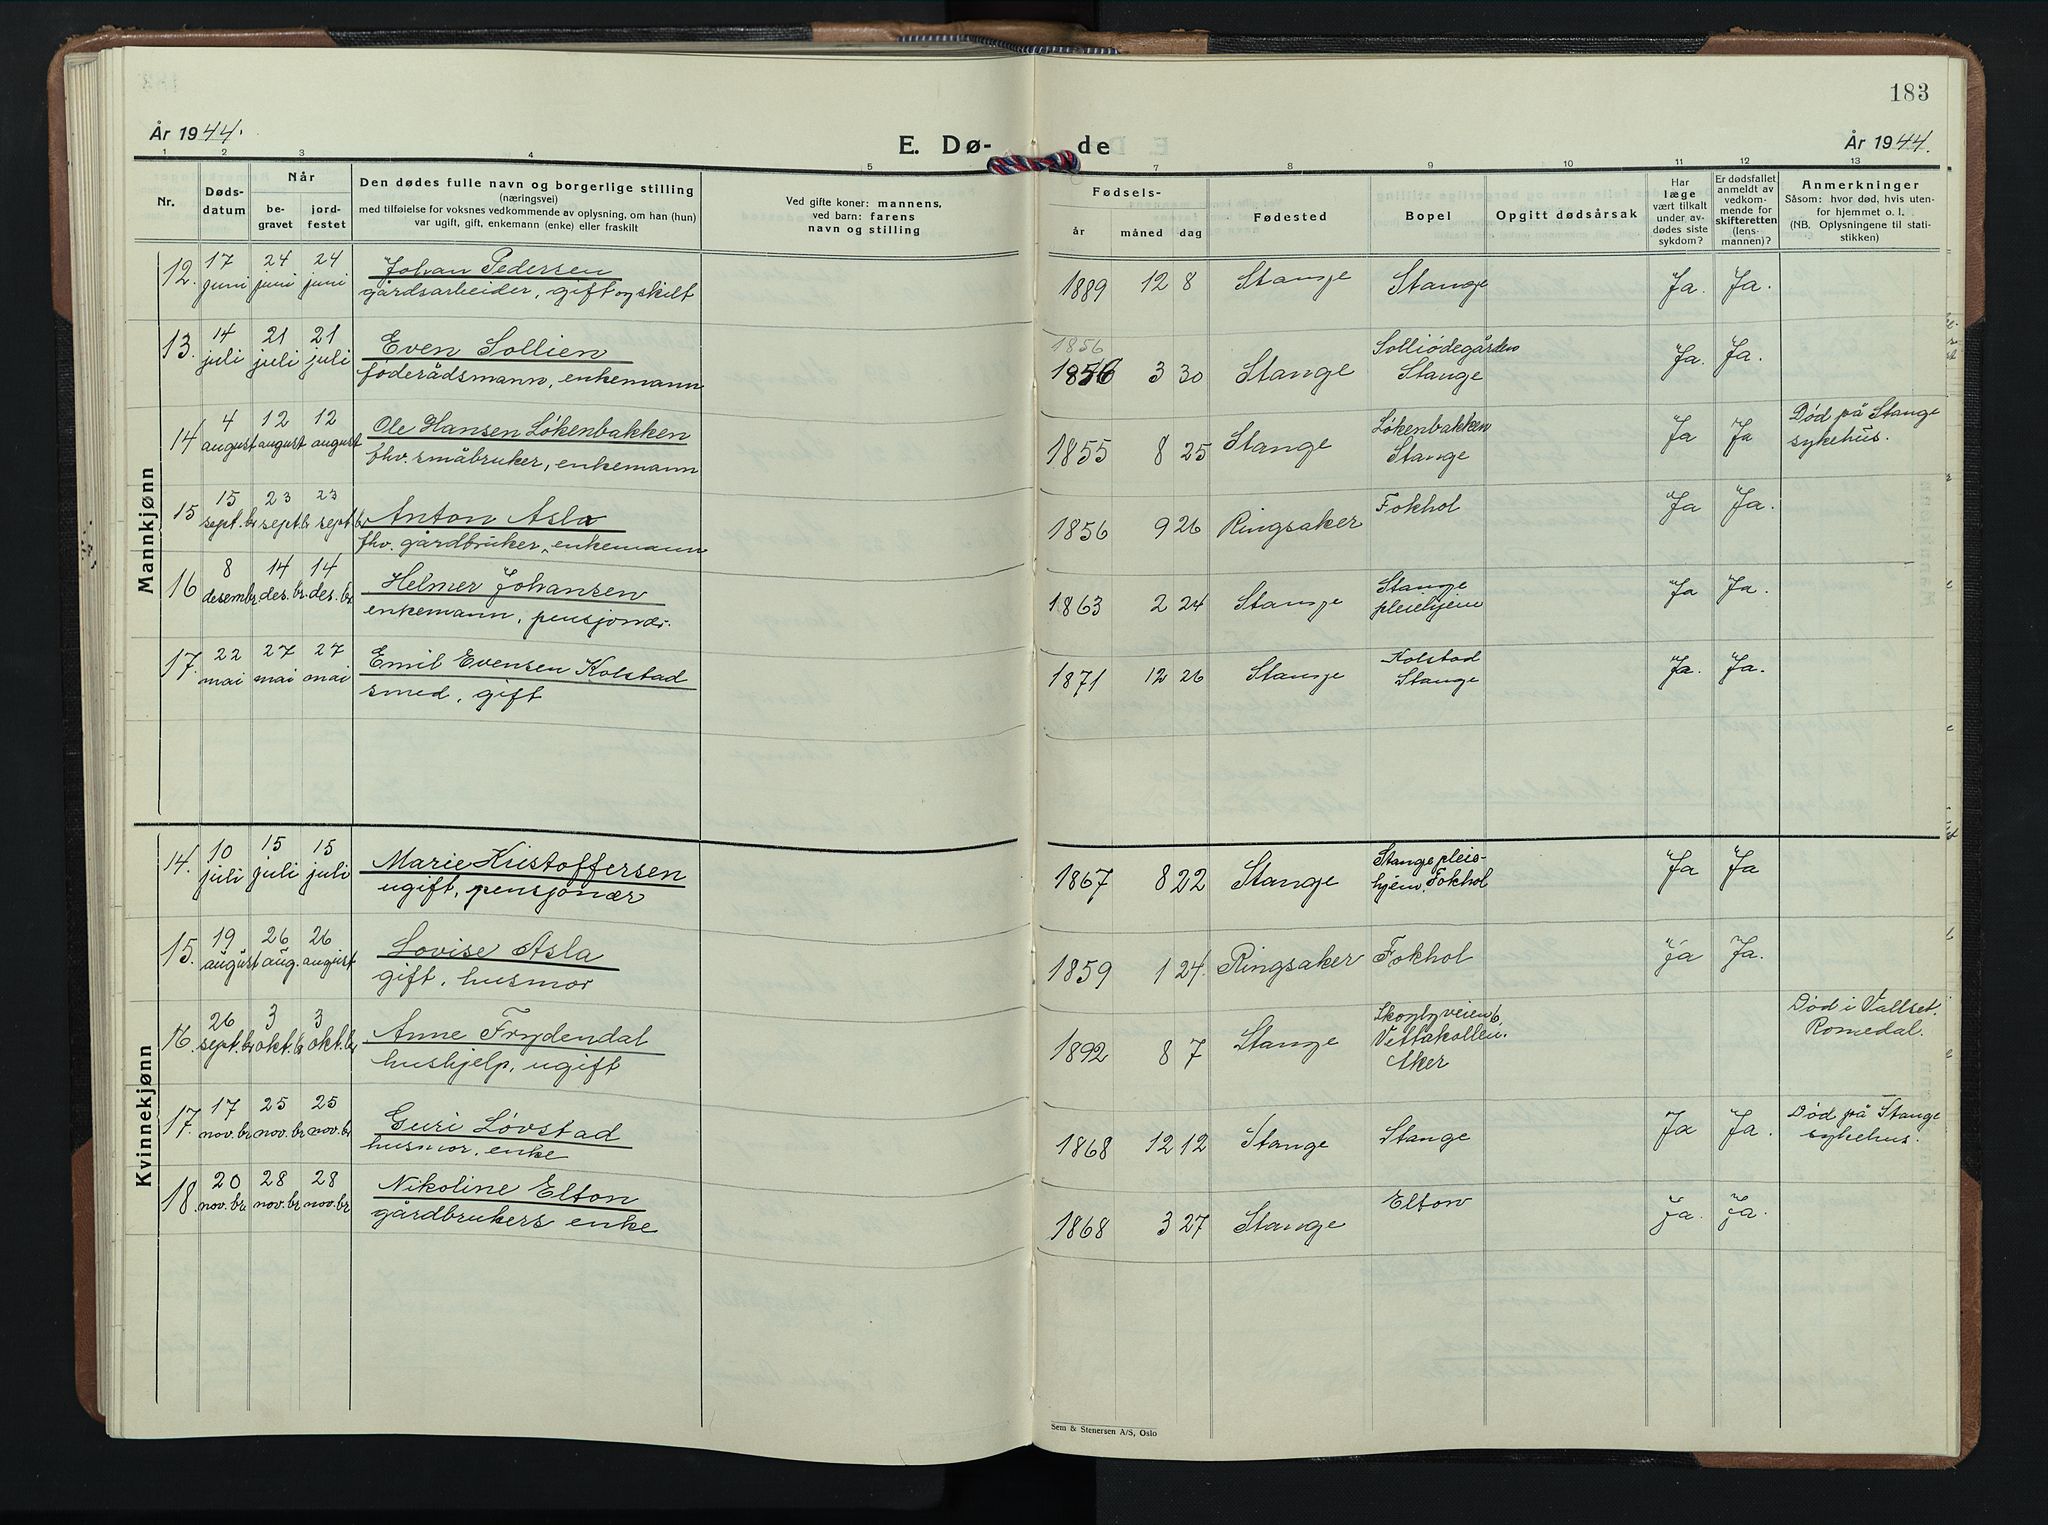 183
År 1944.
E. Dø-
de
År 1944.
1 2 3 4 5 7 8 9 10 11 12 13
Nr.
Døds-
datum
Når
be-
gravet
jord-
festet
Den dødes fulle navn og borgerlige stilling
(næringsvei)
med tilføielse for voksnes vedkommende av oplysning, om han (hun)
var ugift, gift, enkemann (enke) eller fraskilt
Ved gifte koner: mannens,
ved barn: farens
navn og stilling
Fødsels-
år måned dag
Fødested
Bopel
Opgitt dødsårsak
Har
læge
vært tilkalt
under av-
dødes siste
sykdom?
Er dødsfallet
anmeldt av
vedkom-
mende for
skifteretten
(lens-
mannen)?
Anmerkninger
Såsom: hvor død, hvis uten-
for hjemmet o. l.
(NB. Oplysningene til stati-
stikken)
Mannkjønn
12. 17 juni 24 juni 24 juni Johan Pedersen
gårdsarbeider, gift og skilt
1889 12 8 Stange Stange Ja. Ja.
13. 14 juli 21 juli 21 juli Even Sollien
føderådsmann, enkemann
1856
1856 3 30 Stange Solliødegården
Stange Ja. Ja.
14 4 august 12 august 12 august Ole Hansen Løkenbakken
fhv. småbruker, enkemann
1855 8 25 Stange Løkenbakken
Stange Ja Ja Død på Stange
sykehus.
15 15 sept.br 23 sept.br 23 sept.br Anton Asla
fhv. gårdbruker, enkemann
1856 9 26 Ringsaker Fokhol Ja Ja.
16 8 desembr 14 des.br 14 des.br Helmer Johansen
enkemann, pensjonær.
1863 2 24 Stange Stange
pleiehjem Ja Ja.
17. 22 mai 27 mai 27 mai Emil Evensen Kolstad
smed, gift
1871 12 26 Stange Kolstad
Stange Ja. Ja.
Kvinnekjønn
14. 10 juli 15 juli 15 juli Marie Kristoffersen
ugift, pensjonær
1867 8 22 Stange Stange pleie-
hjem, Fokhol Ja Ja
15. 19 august 26 aug. 26 august Lovise Asla
gift, husmor
1859 1 24. Ringsaker Fokhol Ja Ja.
16. 26 sept.br 3 okt.br 3 okt.br Anne Frydendal
hushjelp, ugift
1892 8 7 Stange Skogbyveien 6
Vettakollen.
Aker Død i Vallset.
Romedal.
17. 17 nov.br 25 nov.br 25 nov.br Guri Løvstad
husmor, enke
1868 12 12 Stange Stange Ja Ja. Død på Stange
sykehus.
18. 20 nov.br 28 nov.br 28 nov.br Nikoline Elton
gårdbrukers enke
1868 3 27 Stange Elton Ja. Ja.
Sem & Stenersen A/S, Oslo